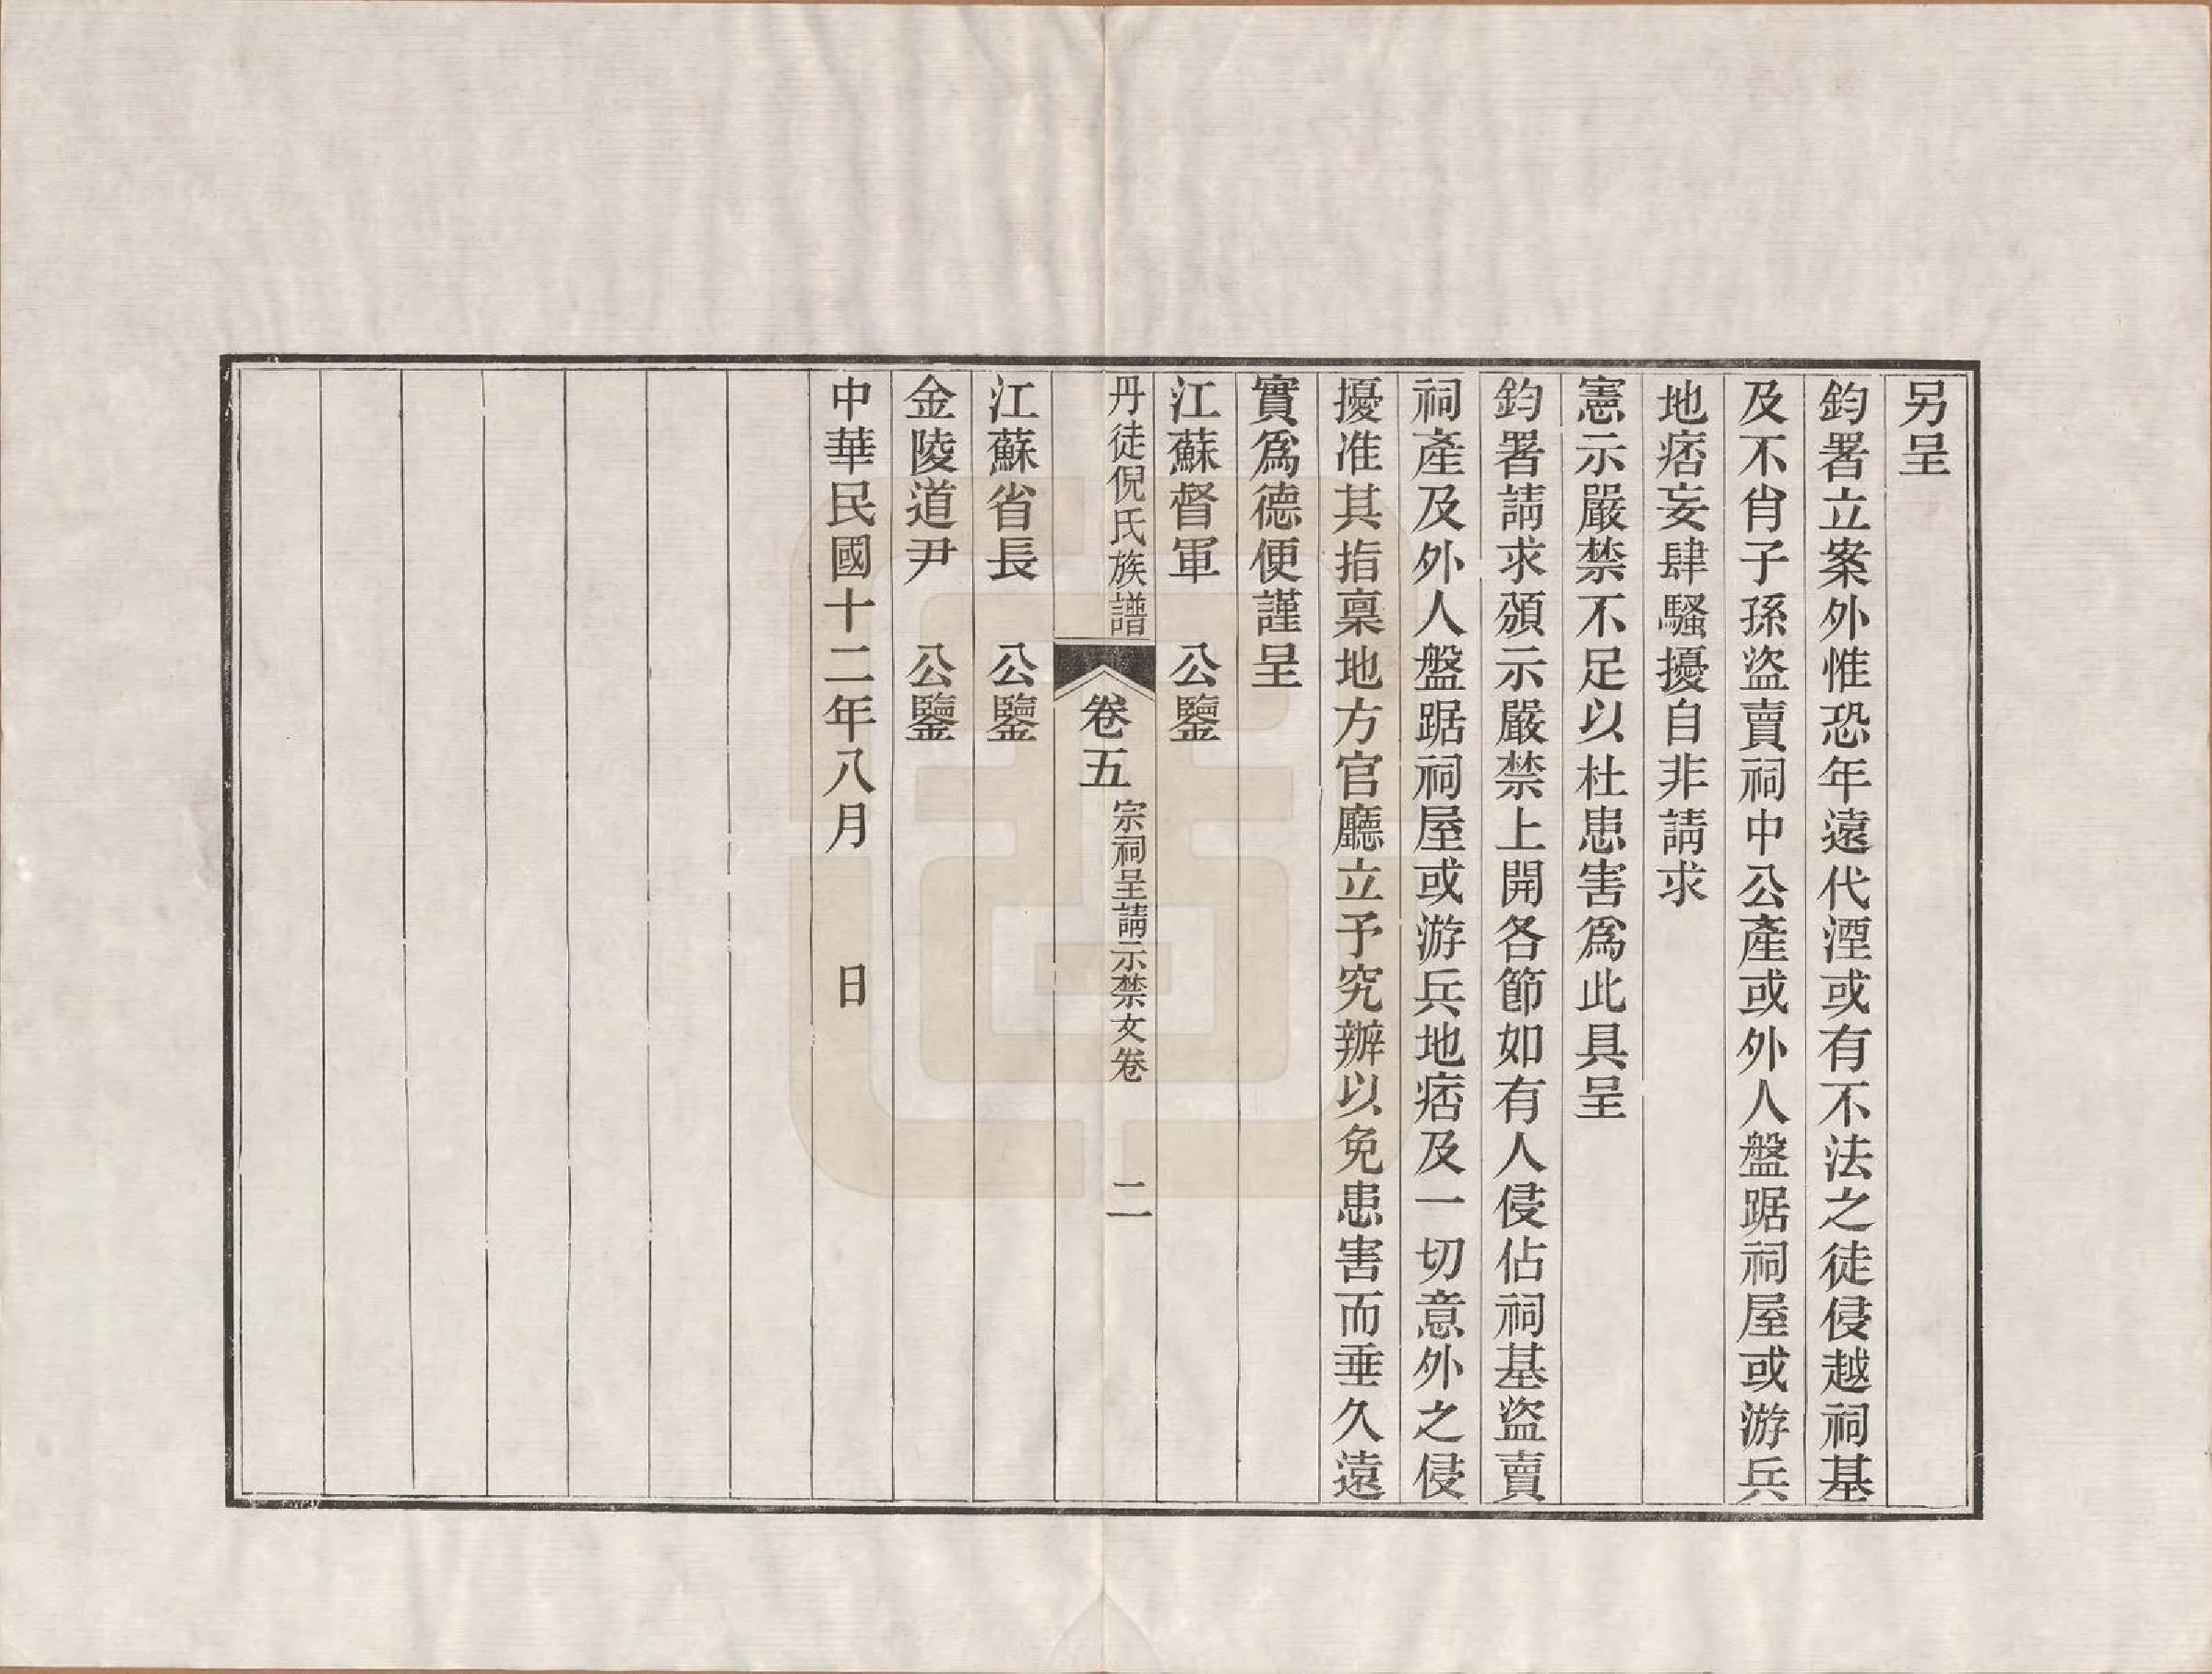 另呈
鈞署立案外惟恐年遠代湮或有不法之徒侵越祠基
及不肖子孫盜賣祠中公產或外人盤踞祠屋或游兵
地痞妄肆騷擾自非請求
憲示嚴禁不足以杜患害爲此具呈
鈞署請求頒示嚴禁上開各節如有人侵佔祠基盜賣
祠產及外人盤踞祠屋或游兵地痞及一切意外之侵
擾准其指稟地方官廳立予究辦以免患害而垂久遠
實爲德便謹呈
江蘇督軍　公鑒
丹徒倪氏族譜　卷五　宗祠呈請示禁文卷　二
江蘇省長　公鑒
金陵道尹　公鑒
中華民國十二年八月　　日